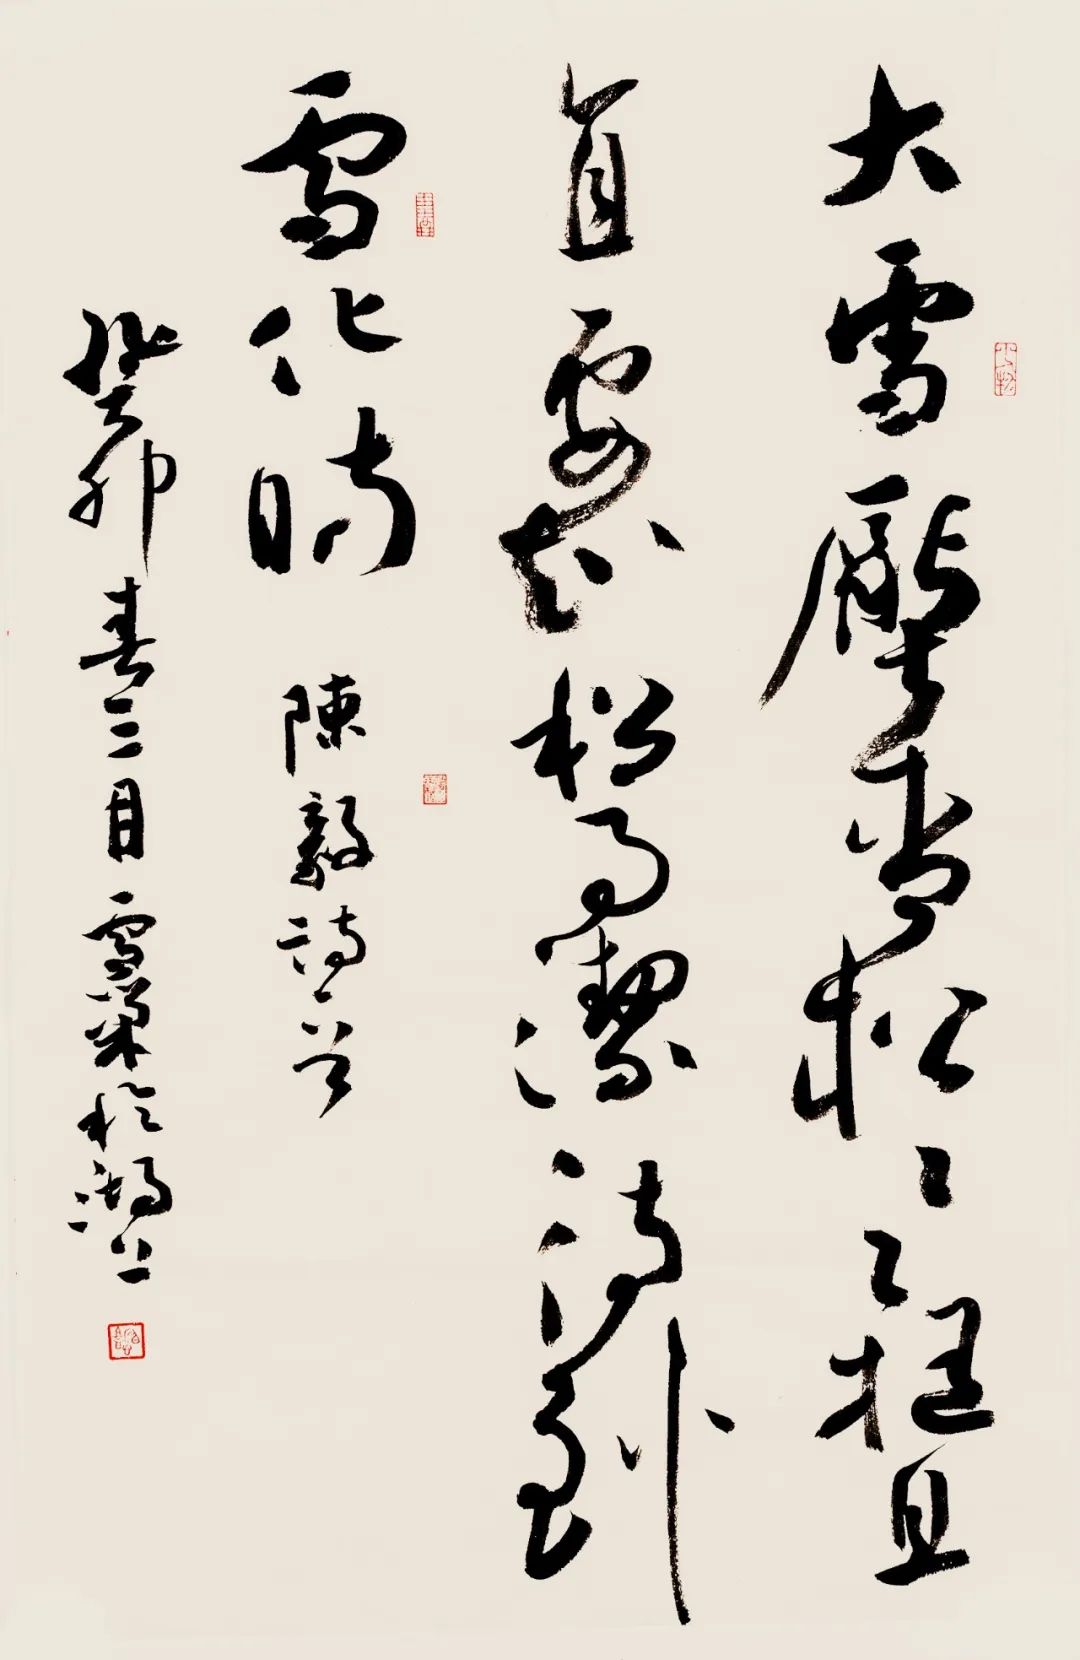 大雪壓青松〻〻挺且
直要知松高潔待到
雪化時 陳毅詩一首
癸卯春三月雪巢於上